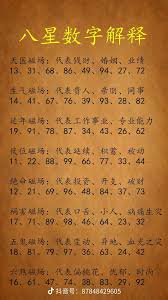 八星数字解释
天医磁场：代表钱财、婚姻、业绩
13、31、68、86、49、94、27、72
生气磁场：代表贵人、亲朋、同事
14、41、67、76、39、93、28、82
延年磁场：代表工作事业、专业能力
19、91、78、87、34、43、26、62
伏位磁场：代表延续、积蓄、被动
11、22、33、44、66、77、88、99
绝命磁场：代表投资、开支、破财
12、21、69、96、48、84、37、73
祸害磁场：代表口舌、小人、病痛生灾
17、71、89、98、46、64、23、32
五鬼磁场：代表变动、异地、血光之灾
18、81、79、97、36、63、24、42
六煞磁场：代表偏桃花、忧郁、时尚
16、61、47、74、38、83、29、92
抖音号：87848429605